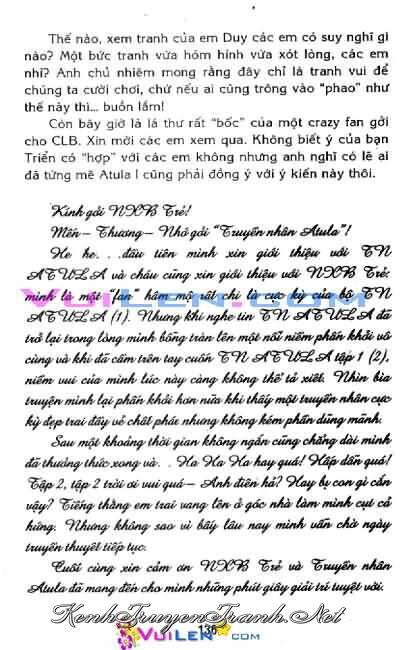 Thế nào, xem tranh của em Duy các em có suy nghĩ gì
nào? Một bức tranh vừa hóm hỉnh vừa xót lòng, các em
nhỉ? Anh chủ nhiệm mong rằng đây chỉ là tranh vui để
chúng ta cười chơi, chứ nếu ai cũng trông vào "phao" như
thế này thì... buồn lắm!
Còn bây giờ là lá thư rất "bốc" của một crazy fan gởi
cho CLB. Xin mời các em xem qua. Không biết ý của bạn
Triển có "hợp" với các em không nhưng anh nghĩ có lẽ ai
đã từng mê Atula I cũng phải đồng ý với ý kiến này thôi.
Kính gởi NXB Trẻ!
Mến - Thương - Nhớ gởi "Truyền nhân Atula"!
He he... đầu tiên mình xin giới thiệu với TN
ATULA và cháu cũng xin giới thiệu với NXB Trẻ:
mình là một "fan" hâm mộ rất chi là cực kỳ của bộ TN
ATULA (1). Nhưng khi nghe tin TN ATULA đã
trở lại trong lòng mình bỗng tràn lên một nỗi niềm phấn khởi vô
cùng và khi đã cầm trên tay cuốn TN ATULA tập 1 (2),
niềm vui của mình lúc này càng không thể tả xiết. Nhìn bìa
truyện mình lại phấn khởi hơn nữa khi thấy một truyền nhân cực
kỳ đẹp trai đầy vẻ chất phác nhưng không kém phần dũng mãnh.
Sau một khoảng thời gian không ngắn cũng chẳng dài mình
đã thưởng thức xong và. . Ha Ha Ha hay quá! Hấp dẫn quá!
Tập 2, tập 2 trời ơi vui quá - Anh điên hả? Hay bị con gì cắn
vậy? Tiếng thằng em trai vang lên ở góc nhà làm mình cụt cả
hứng. Nhưng không sao vì bấy lâu nay mình vẫn chờ ngày
truyền thuyết tiếp tục.
Cuối cùng xin cảm ơn NXB Trẻ và Truyền nhân
Atula đã mang đến cho mình những phút giây giải trí tuyệt vời.
136
KenhTruyenTranh.Net
VUILEN.COM